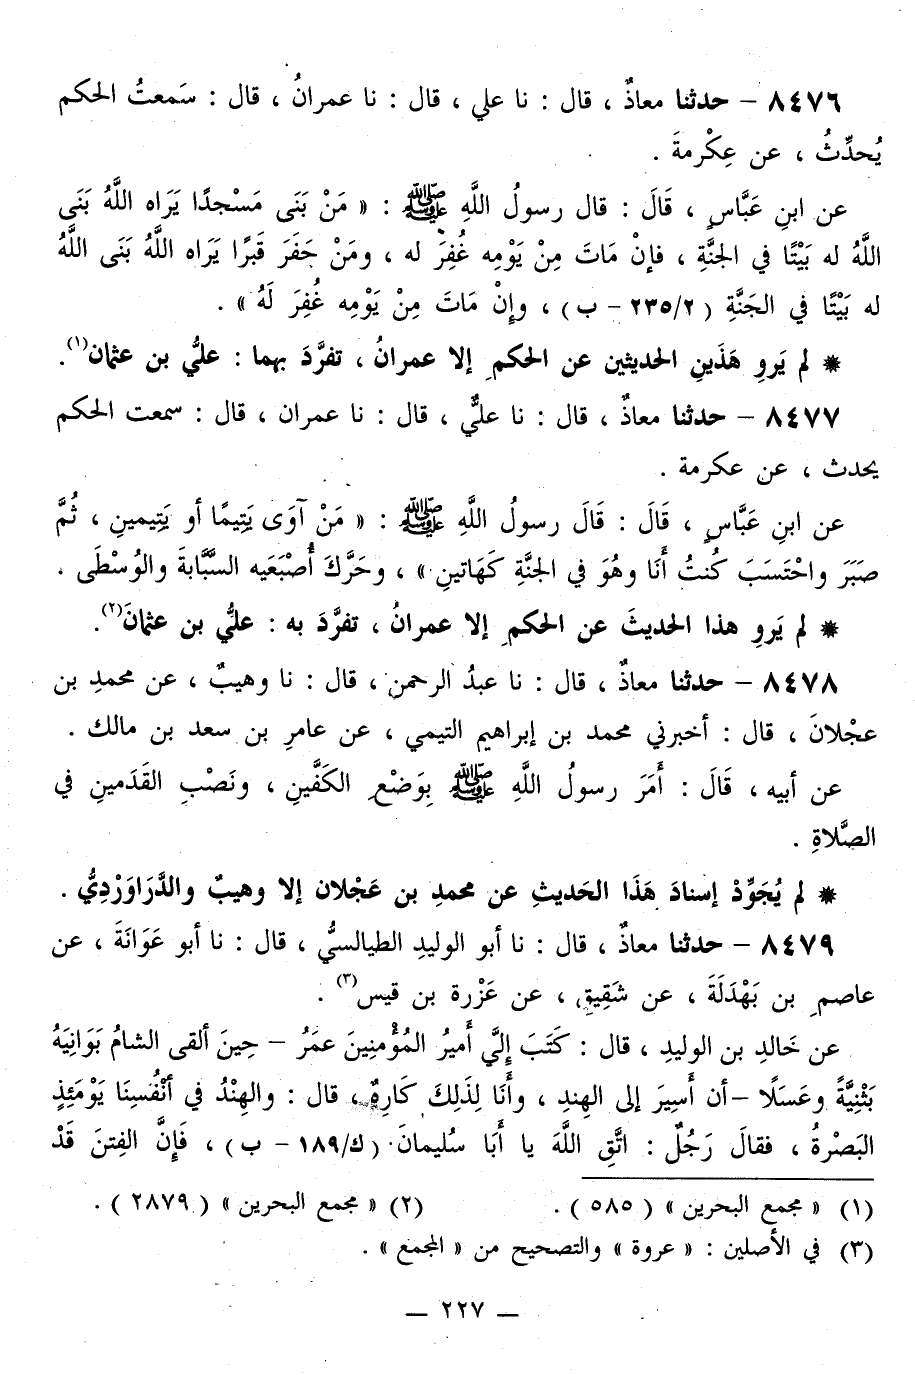 ٨٤٧٦ – حدثنا معاذٌ ، قال : نا علي ، قال : نا عمرانُ ، قال : سَمعتُ الحكم
يُحدِّثُ ، عن عِكْرمةَ .
عن ابنِ عَبَّاسٍ ، قَالَ : قال رسولُ اللَّهِ ﷺ : « مَنْ بَنَى مَسْجدًا يَرَاه اللَّهُ بَنَى
اللَّهُ له بَيْتًا في الجنَّةِ ، فإنْ مَاتَ مِنْ يَوْمِه غُفِرَ له ، ومَنْ حَفَرَ قَبرًا يَرَاه اللَّهُ بَنَى اللَّهُ
له بَيْتًا في الجَنَّةِ ( ٢٣٥/٢ – ب ) ، وإنْ مَاتَ مِنْ يَوْمِه غُفِرَ لَهُ » .
* لم يَروِ هَذَينِ الحديثين عن الحكمِ إلا عمرانُ ، تفرَّدَ بهما : عليُّ بن عثمان(١).
٨٤٧٧ – حدثنا معاذٌ ، قال : نا عليٌّ ، قال : نا عمران ، قال : سمعت الحكم
يحدث ، عن عكرمة .
عن ابنِ عَبَّاسٍ ، قَالَ : قَالَ رسولُ اللَّهِ ﷺ : « مَنْ آوَى يَتِيمًا أو يَتِيمينِ ، ثُمَّ
صَبَرَ واحْتَسَبَ كُنتُ أَنَا وهُوَ في الجنَّةِ كَهَاتينِ » ، وحَرَّكَ أُصْبَعَيه السَّبَّابةَ والوُسْطَى .
* لم يَروِ هذا الحديثَ عن الحكمِ إلا عمرانُ ، تفرَّدَ به : عليُّ بن عثمانَ(٢).
٨٤٧٨ – حدثنا معاذٌ ، قال : نا عبدُ الرحمنِ ، قال : نا وهيبٌ ، عن محمدِ بن
عجْلانَ ، قال : أخبرني محمد بن إبراهيم التيمي ، عن عامرِ بن سعد بن مالك .
عن أبيه ، قَالَ : أَمَرَ رسولُ اللَّهِ ﷺ بِوَضْعِ الكَفَّينِ ، ونَصْبِ القَدَمينِ في
الصَّلاةِ .
* لم يُجَوِّدْ إسنادَ هَذَا الحَديثِ عن محمدِ بن عَجْلان إلا وهيبٌ والدَّرَاوَرْدِيُّ .
٨٤٧٩ – حدثنا معاذٌ ، قال : نا أبو الوليدِ الطيالسيُّ ، قال : نا أبو عَوَانَةَ ، عن
عاصمِ بن بَهْدَلَةَ ، عن شَقِيقٍ ، عن عَزْرة بن قيس(٣) .
عن خَالدِ بن الوليدِ ، قال : كَتَبَ إِلَيَّ أَميرُ المُؤْمنِينَ عمَرُ – حِينَ ألقى الشامُ بَوَانِيَهُ
بَثْنِيَّةً وعَسَلًا –أن أَسِيرَ إلى الهِندِ ، وأَنَا لِذَلِكَ كَارِهٌ ، قال : والهِنْدُ في أنْفُسِنَا يَوْمَئِذٍ
البَصْرةُ ، فقالَ رَجُلٌ : اتَّقِ اللَّهَ يا أَبَا سُليمانَ ( ك/١٨٩ – ب ) ، فَإِنَّ الفِتنَ قَدْ
(١) « مجمع البحرين » ( ٥٨٥ ) . (٢) « مجمع البحرين » ( ٢٨٧٩ ) .
(٣) في الأصلين : « عروة » والتصحيح من « المجمع » .
– ٢٢٧ –